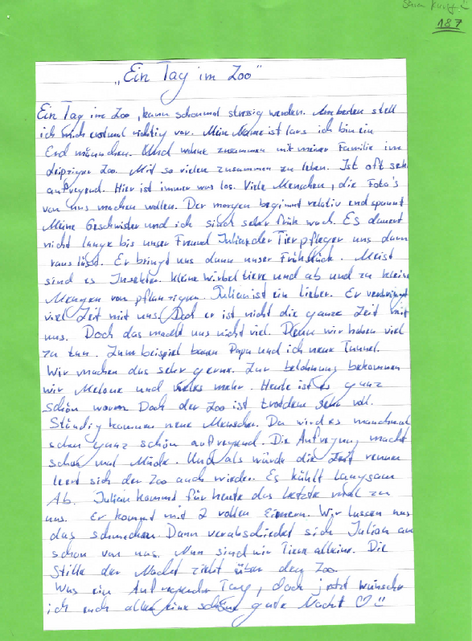 187
"Ein Tag im Zoo"
Ein Tag im Zoo, kann schonmal stressig werden. Am besten stell
ich mich erstmal richtig vor. Mein Name ist Lars ich bin ein
Erdmännchen. Und wohne zusammen mit meiner Familie im
Leipziger Zoo. Mit so vielen zusammen zu leben. Ist oft sehr
aufregend. Hier ist immer was los. Viele Menschen, die Foto's
von uns machen wollen. Der morgen beginnt relativ endspannt
Meine Geschwister und ich sind sehr früh wach. Es dauert
nicht lange bis unser Freund Julian der Tierpfleger uns dann
raus lässt. Er bringt uns dann unser Frühstück. Meist
sind es Insekten. Kleine wirbeltiere und ab und zu kleine
Mengen von pflanzigen. Julian ist ein lieber. Er verbringt
viel Zeit mit uns. Doch er ist nicht die ganze Zeit bei
uns. Doch das macht uns nicht viel. Denn wir haben viel
zu tun. Zum beispiel bauen Papa und ich neue Tunnel.
Wir machen das sehr gerne. Zur belohnung bekommen
wir Melone und vieles mehr. Heute ist es ganz
schön warm. Doch der Zoo ist trotzdem sehr voll.
Ständig kommen neue Menschen. Da wird es manchmal
schon ganz schön aufregend. Die Aufregung macht
schon mal Müde. Und als würde die Zeit rennen
leert sich der Zoo auch wieder. Es kühlt langsam
Ab. Julian kommt für heute das letzte mal zu
uns. Er kommt mit 2 vollen Eimern. Wir lassen uns
das schmecken. Dann verabschiedet sich Julian auch
schon von uns. Nun sind wir Tiere alleine. Die
Stille der Nacht zieht über den Zoo
Was ein Aufregender Tag, doch jetzt wünsche
ich euch allen eine schöne gute Nacht ♡!!